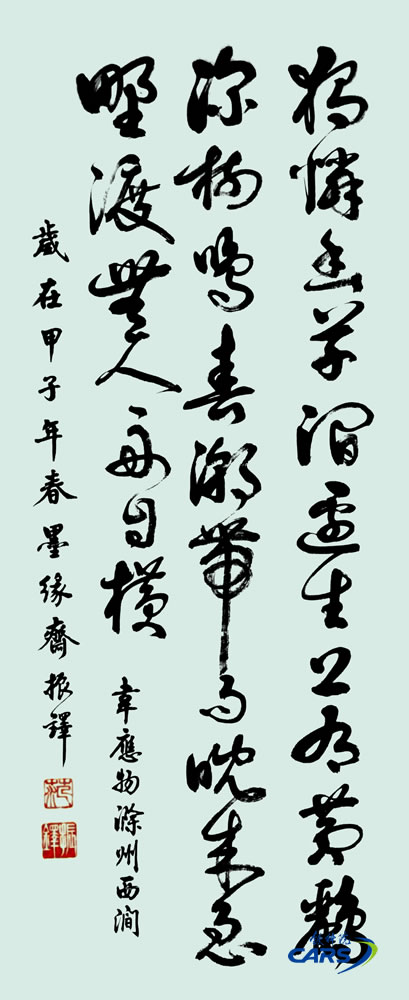 獨憐幽草澗邊生上有黃鸝
深樹鳴春潮帶雨晚來急
野渡無人舟自橫
韋應物滁州西澗
歲在甲子年春墨緣齋振鐸
振鐸
CARS